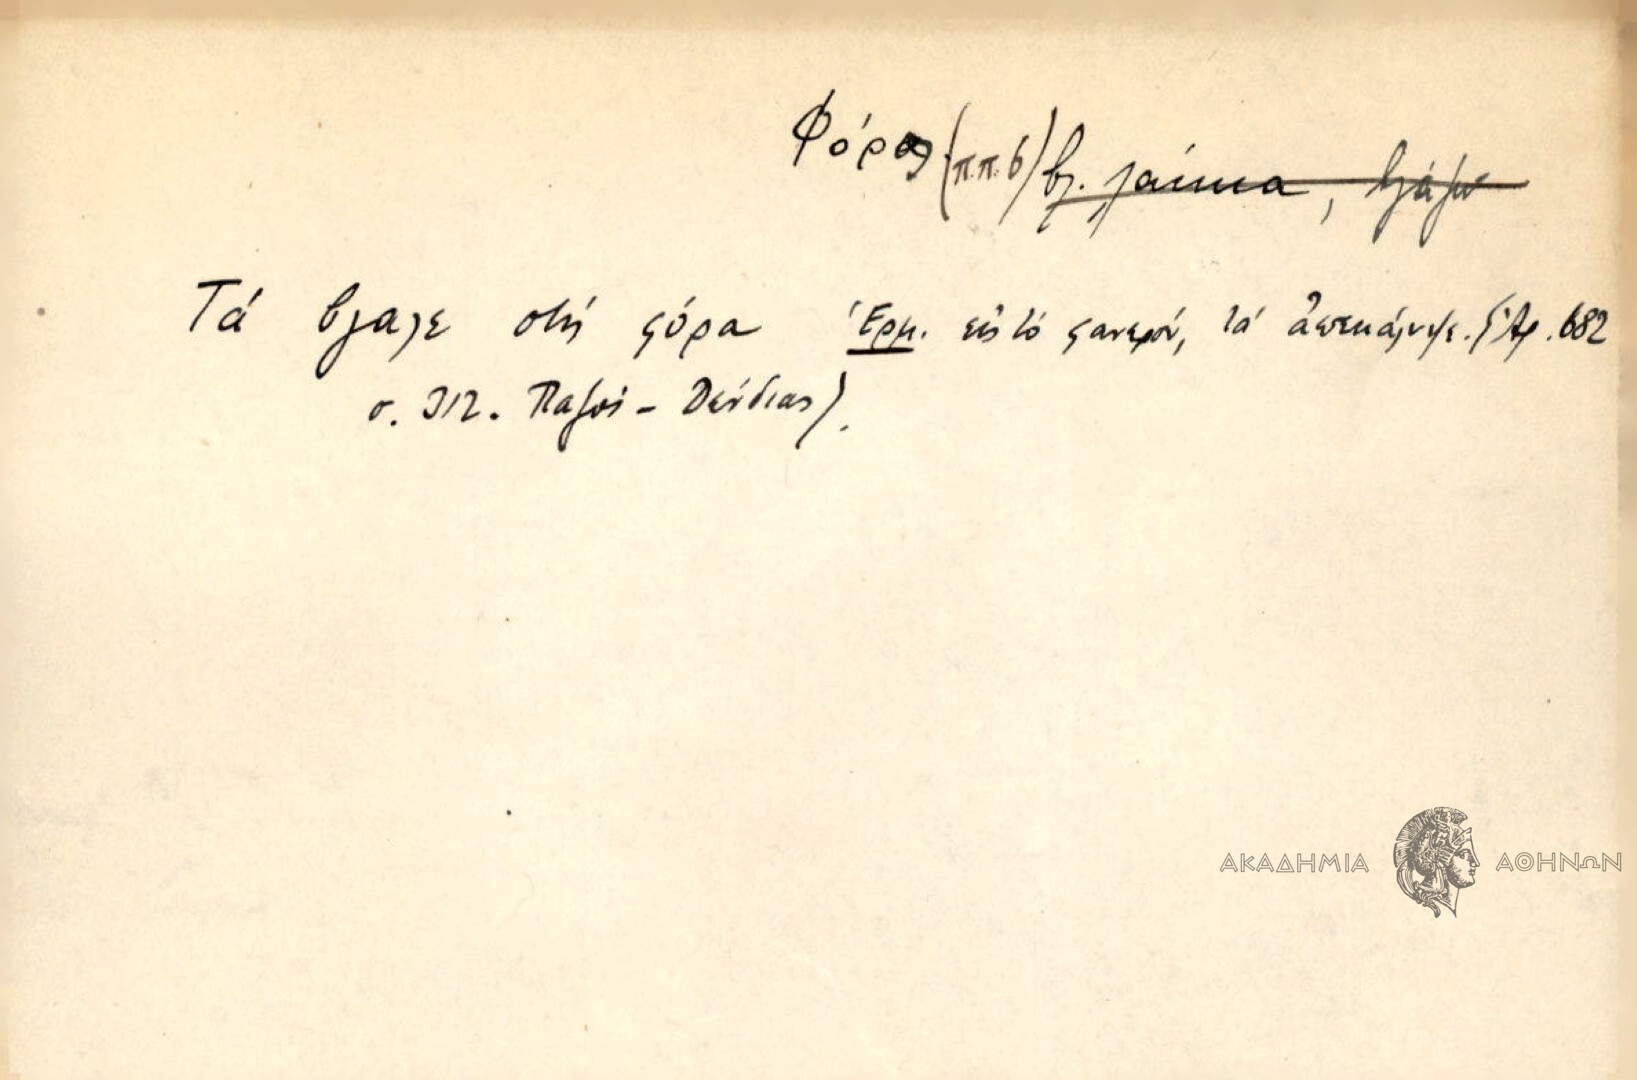 Φόρος (π.π. 6) βλ. λάκκα, βγάζω
Τά βγαλε στή φόρα Ἑρμ. εἰς τό φανερόν, τά ἀπεκάλυψε. (Ἀρ. 682
σ. 312. Παξοί -
ΑΚΑΔΗΜΙΑ ΑΘΗΝΩΝ